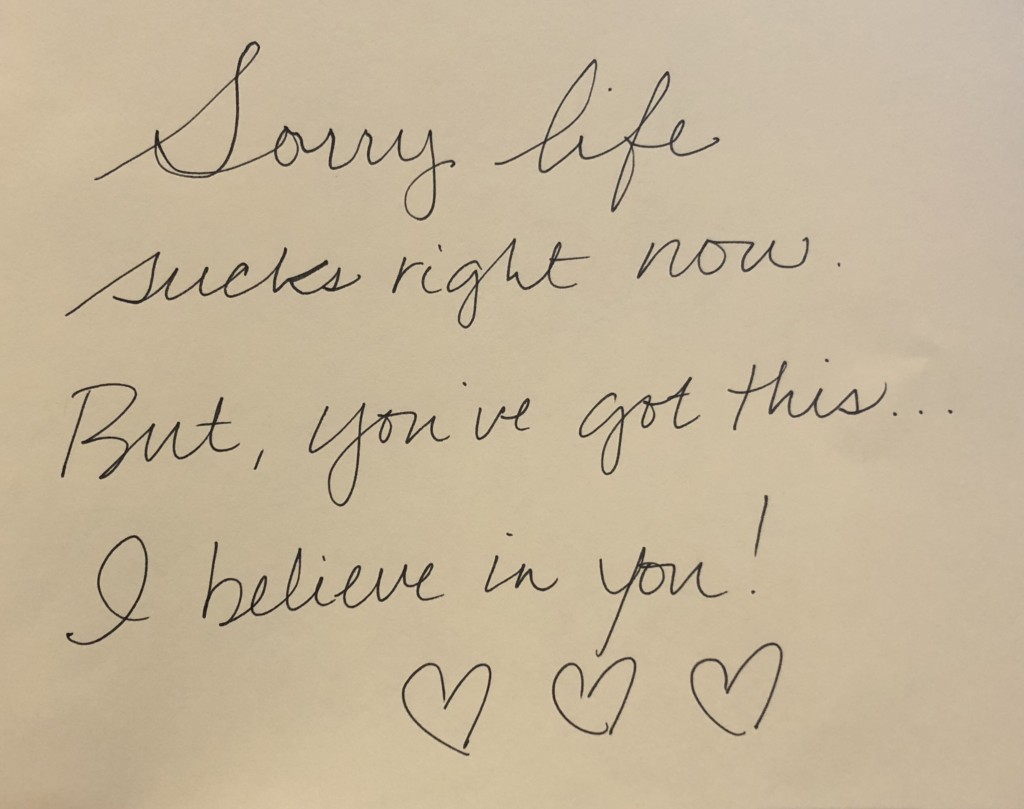 Sorry life
sucks right now.
But, you've got this...
I believe in you!